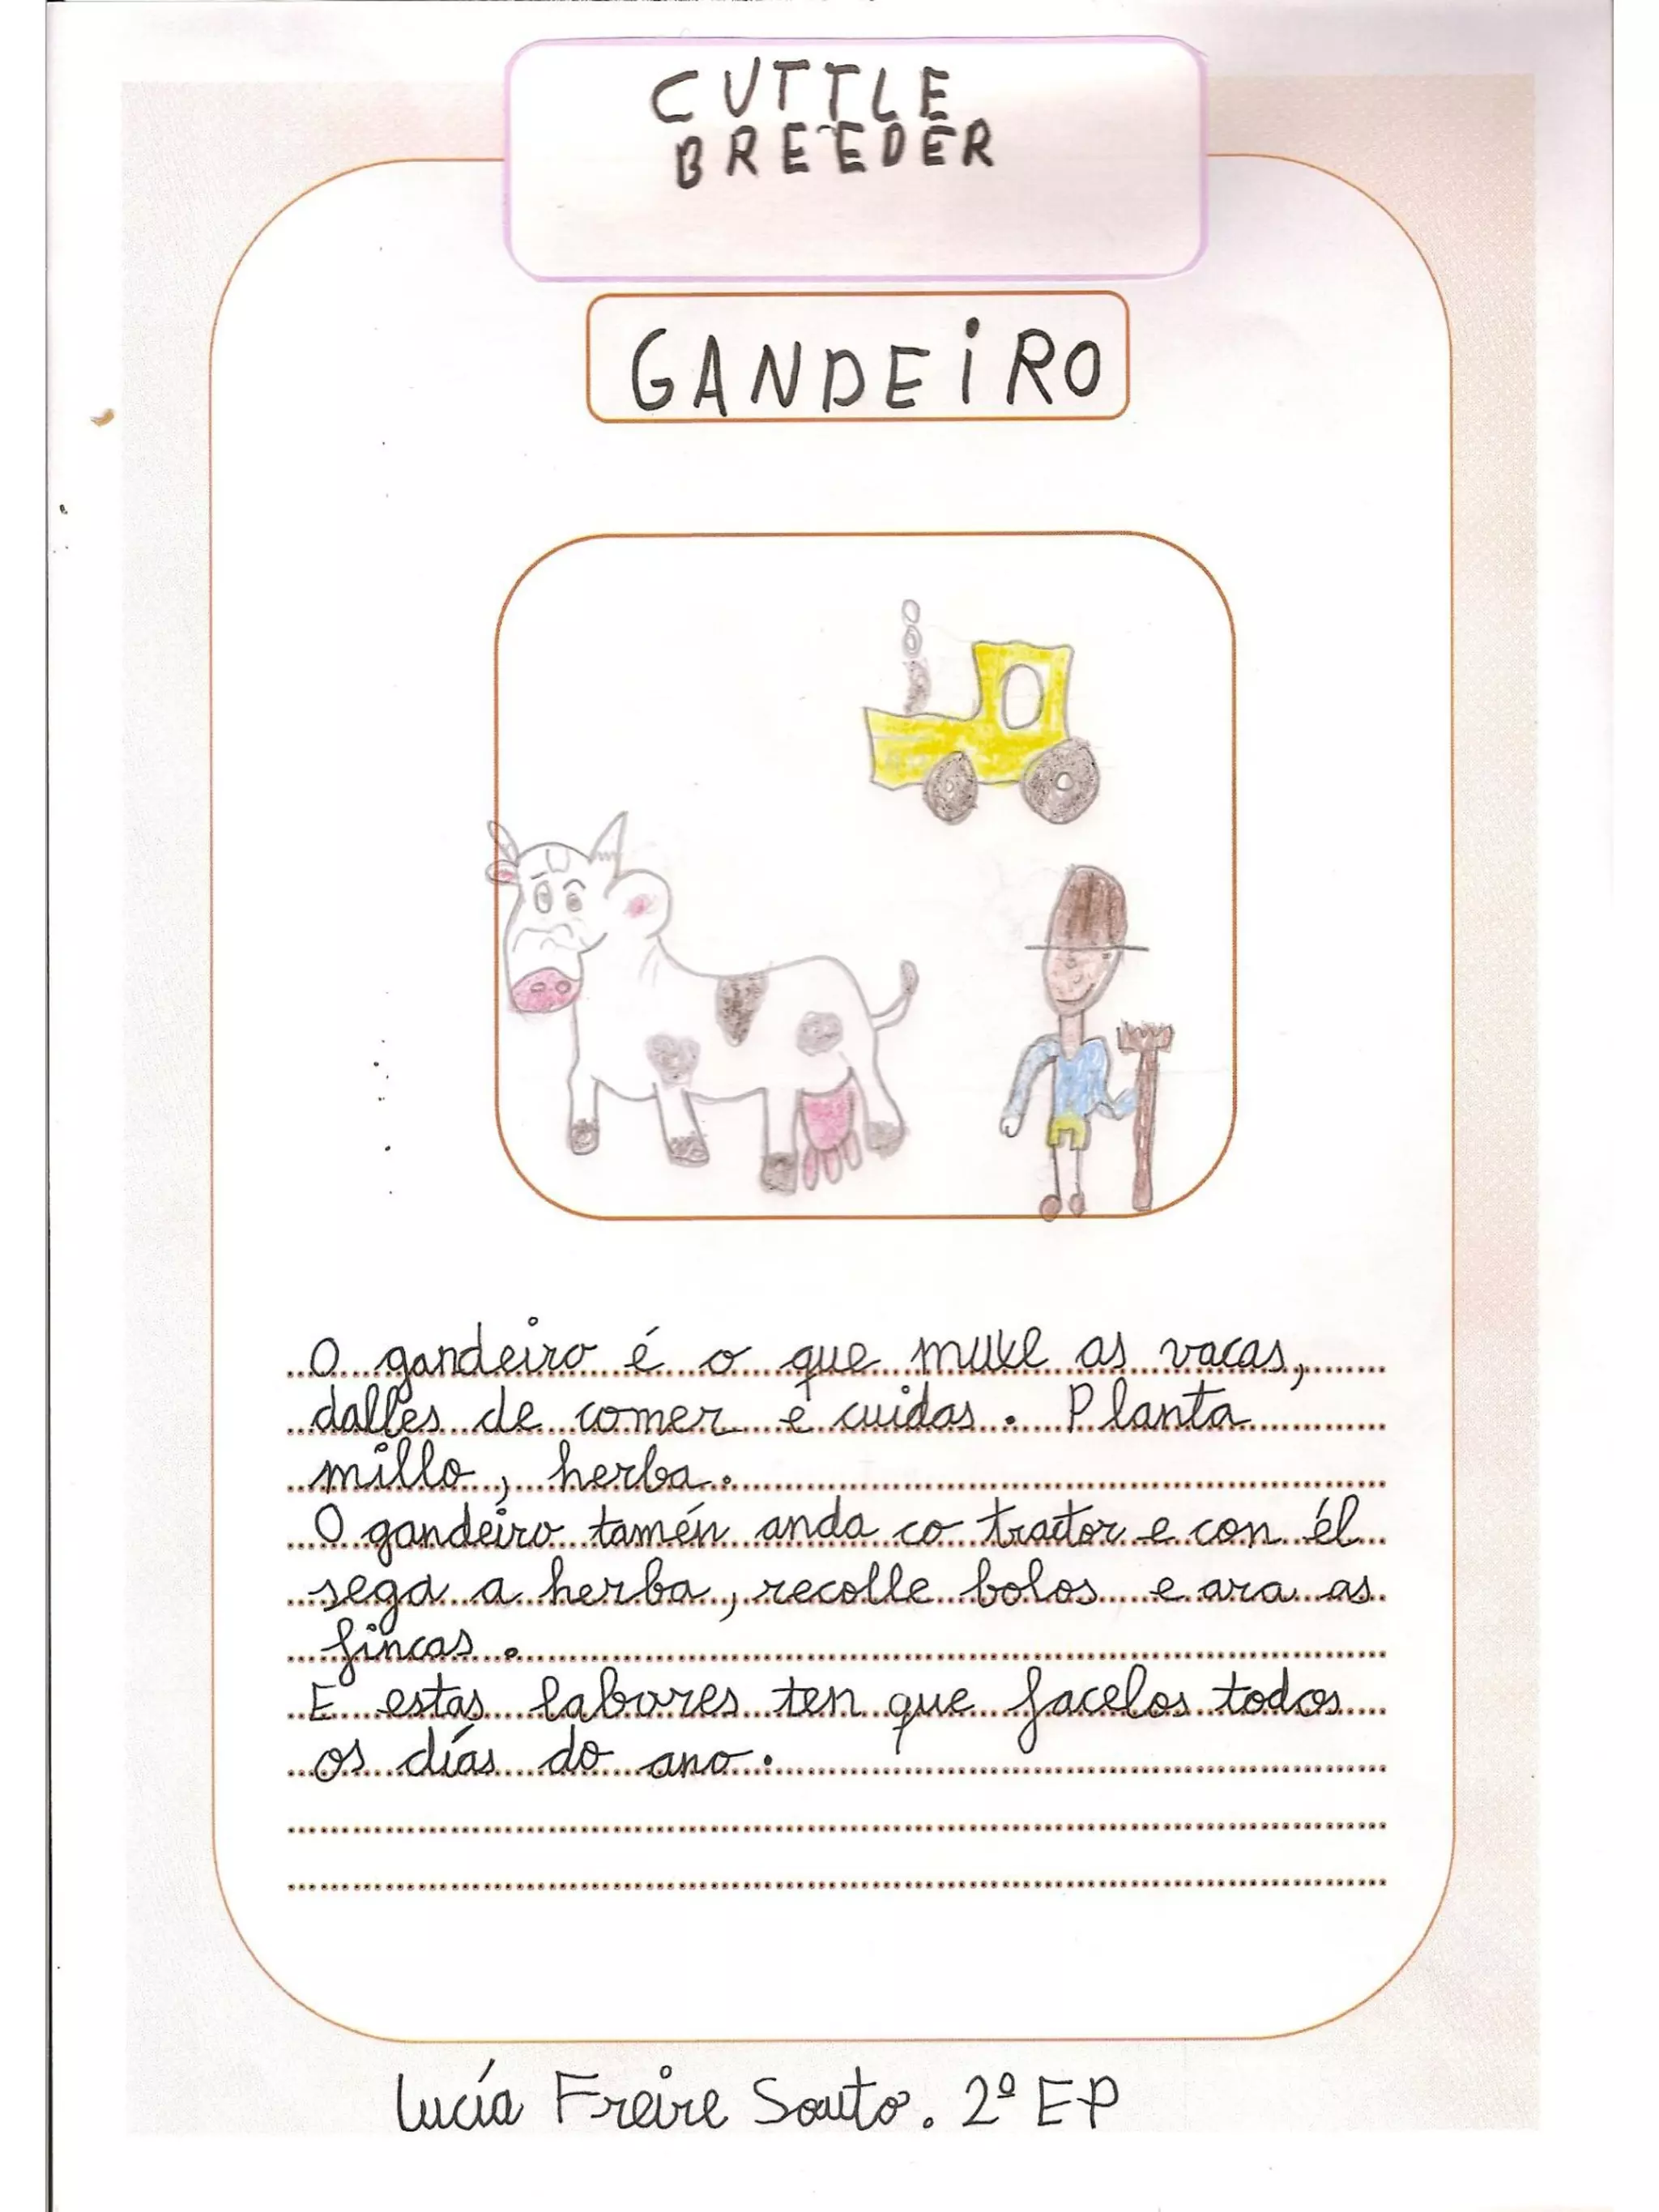 CUTTLE
BREEDER
GANDEIRO
O gandeiro é o que muxe as vacas,
dalles de comer e cuidas. Planta
millo, herba.
O gandeiro tamén anda co tractor e con él
sega a herba, recolle bolos e ara as
fincas.
E estas labores ten que facelos todos
os días do ano.
Lucía Freire Souto. 2º EP